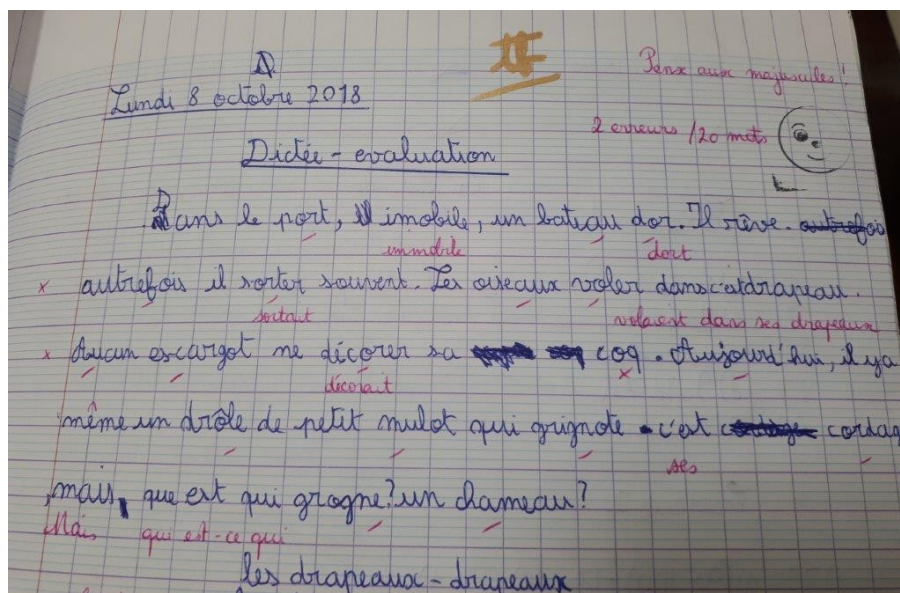 Pense aux majuscules !
Lundi 8 octobre 2018
2 erreurs /20 mots
Dictée - evaluation
Dans le port, il imobile, un bateau dor. Il rêve. autrefois
immobile dort
autrefois il sorter souvent. Les oiseaux voler dans c'atdrapeau.
sortait volaient dans ses drapeaux
Aucun escargot ne décorer sa coq. Aujourd'hui, il ya
décorait
même un drôle de petit mulot qui grignote c'est cordag
ses
, mais, que est qui grogne? un chameau?
Mais qui est-ce qui
les drapeaux - drapeaux